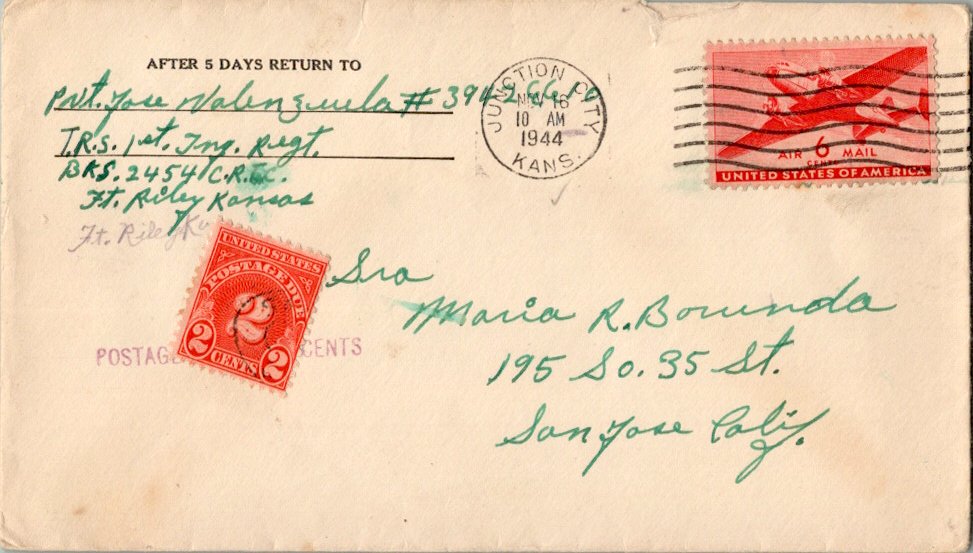 AFTER 5 DAYS RETURN TO
Pvt. Jose Valenzuela # 394
T.R.S. 1st. Tng. Regt.
BKS. 2454 C.R.T.C.
Ft. Riley Kansas
Ft. Riley Ka
JUNCTION CITY
NOV 16
10 AM
1944
KANS.
AIR 6 MAIL
CENTS
UNITED STATES OF AMERICA
UNITED STATES
POSTAGE DUE
2
2 CENTS 2
POSTAGE CENTS
Sra
Maria R. Borunda
195 So. 35 St.
San Jose Calif.